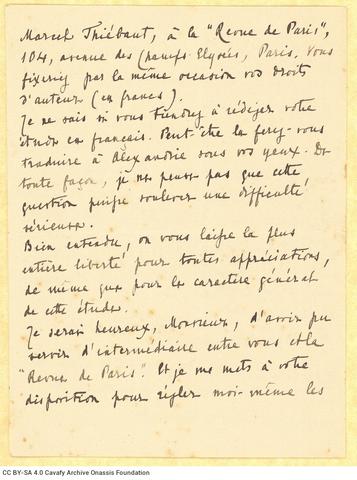 Marcel Thiébaut, à la "Revue de Paris",
104, avenue des Champs-Elysées, Paris. Vous
fixeriez par la même occasion vos droits
d'auteur (en francs).
Je ne sais si vous tiendrez à rédiger votre
étude en français. Peut-être la ferez-vous
traduire à Alexandrie sous vos yeux. De
toute façon, je ne pense pas que cette
question puisse soulever une difficulté
sérieuse.
Bien entendu, on vous laisse la plus
entière liberté pour toutes appréciations,
de même que pour le caractère général
de cette étude.
Je serais heureux, Monsieur, d'avoir pu
servir d'intermédiaire entre vous et la
"Revue de Paris". Et je me mets à votre
disposition pour régler moi-même les
CC BY-SA 4.0 Cavafy Archive Onassis Foundation